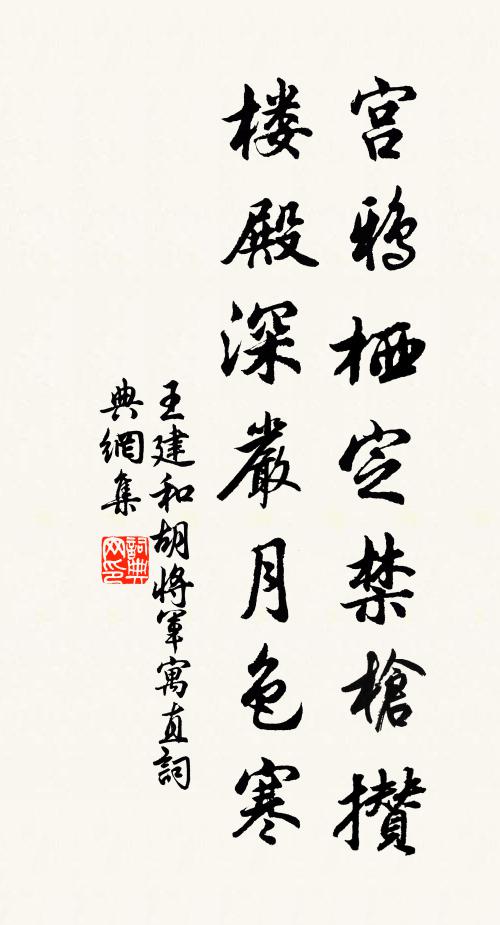 宫鴉栖定禁槍攢
楼殿深嚴月色寒
王建和胡將軍寓直詞
典網集
詞典網印